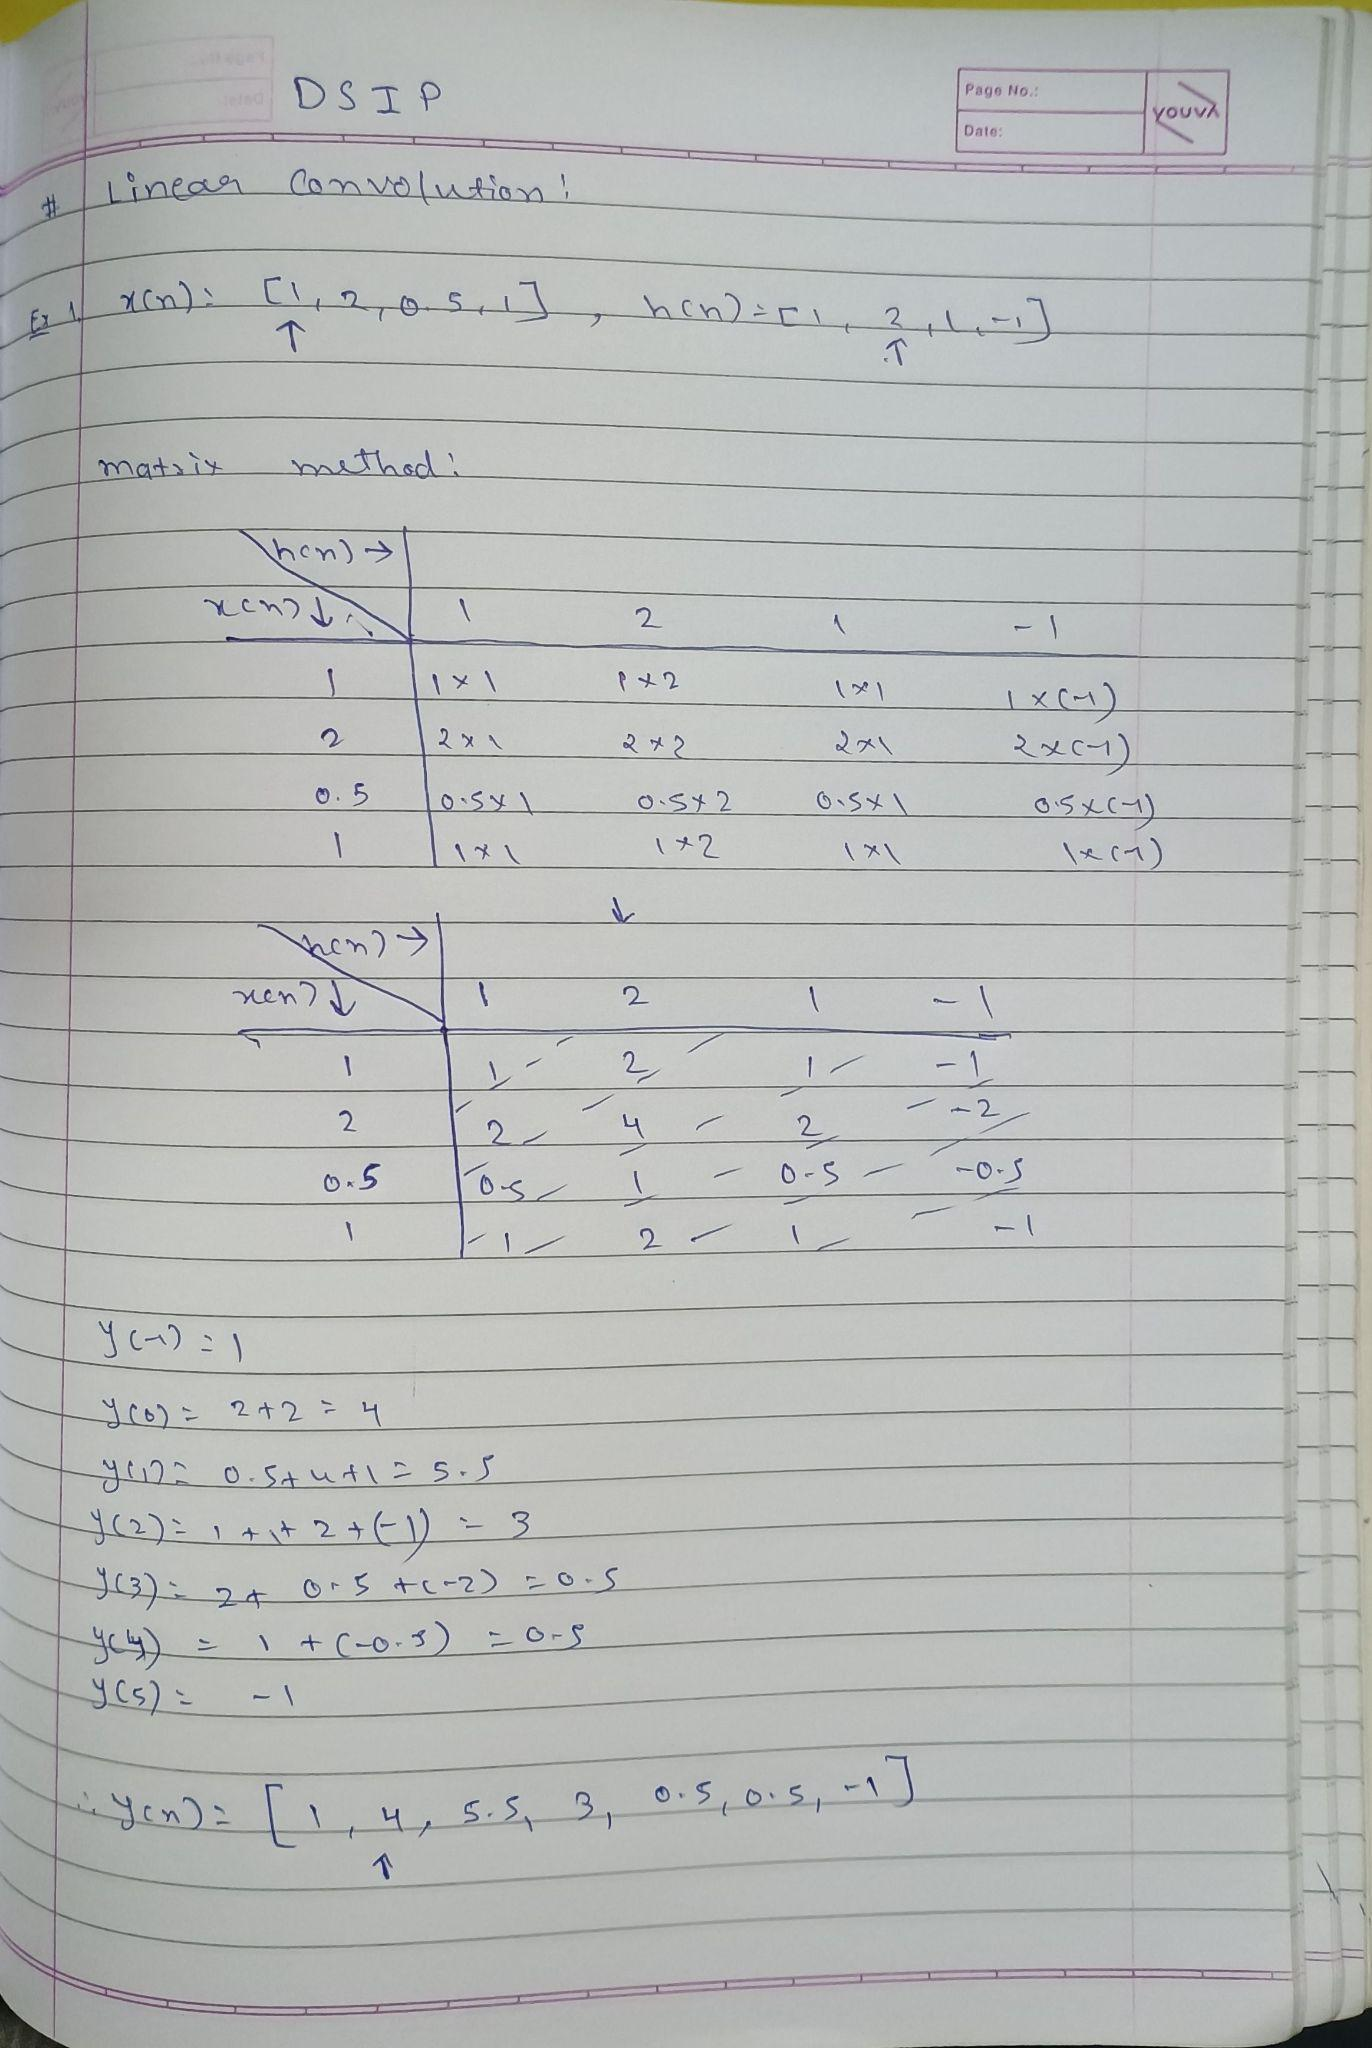 DSIP
Page No.:
Date:
YOUVA
# Linear Convolution:
Ex 1. x(n): [1, 2, 0.5, 1], h(n)=[1, 2, 1, -1]
↑ ↑
matrix method:
h(n) →
x(n) ↓ 1 2 1 -1
1 1×1 1×2 1×1 1×(-1)
2 2×1 2×2 2×1 2×(-1)
0.5 0.5×1 0.5×2 0.5×1 0.5×(-1)
1 1×1 1×2 1×1 1×(-1)
↓
h(n) →
x(n) ↓ 1 2 1 -1
1 1 2 1 -1
2 2 4 2 -2
0.5 0.5 1 0.5 -0.5
1 1 2 1 -1
y(-1) = 1
y(0) = 2+2 = 4
y(1) = 0.5+4+1 = 5.5
y(2) = 1+1+2+(-1) = 3
y(3) = 2+0.5+(-2) = 0.5
y(4) = 1+(-0.5) = 0.5
y(5) = -1
∴ y(n) = [1, 4, 5.5, 3, 0.5, 0.5, -1]
↑